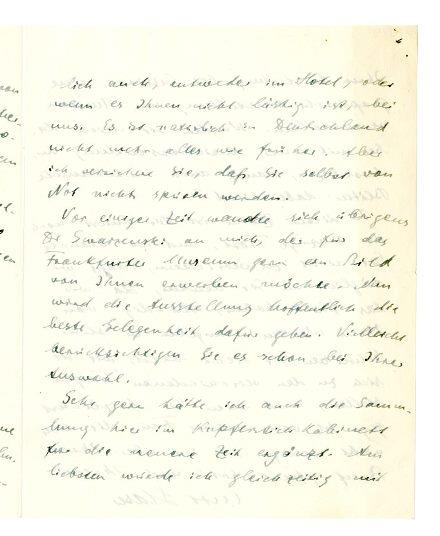 lich auch, entweder im Hotel, oder
wenn es Ihnen nicht lästig ist, bei
uns. Es ist natürlich in Deutschland
nicht mehr alles wie früher. Aber
ich versichere Sie, daß Sie selbst von
Not nicht spüren werden.
Vor einiger Zeit wandte sich übrigens
Dr Swarzenski an mich, der für das
Frankfurter Museum gern ein Bild
von Ihnen erwerben möchte. Nun
wird die Ausstellung hoffentlich die
beste Gelegenheit dafür geben. Vielleicht
berücksichtigen Sie es schon bei Ihrer
Auswahl.
Sehr gern hätte ich auch die Samm-
lung hier im Kupferstichkabinett
für die neuere Zeit ergänzt. Am
liebsten würde ich gleichzeitig mit